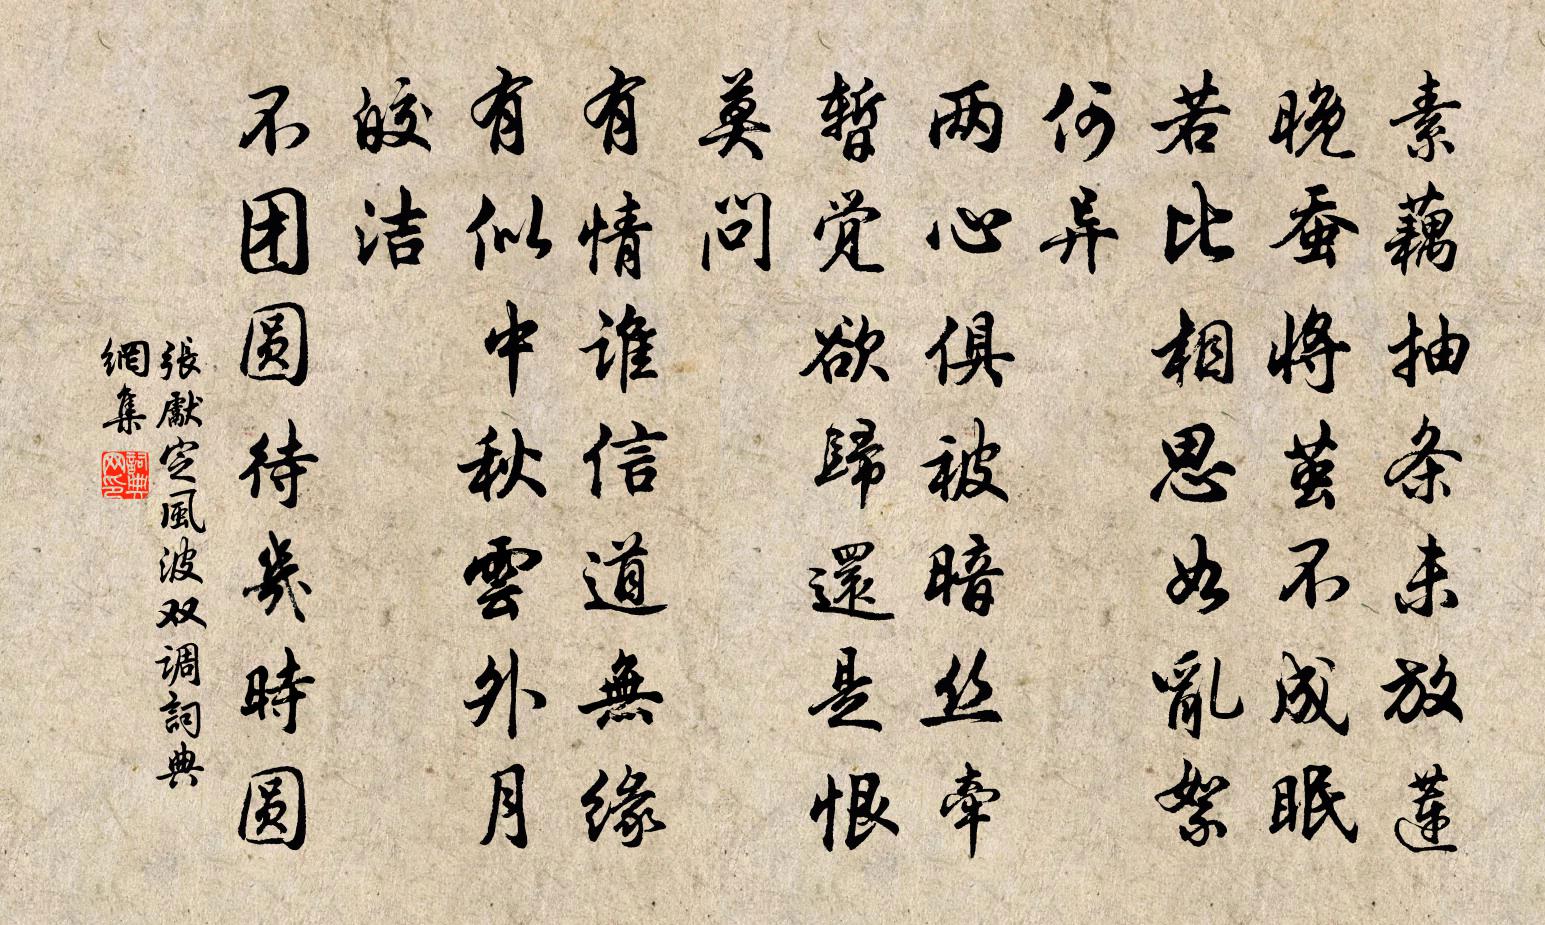 素藕抽条未放蓮
晚蚕将茧不成眠
若比相思如亂絮
何异
两心俱被暗丝牵
暫觉欲歸還是恨
莫问
有情谁信道無缘
有似中秋雲外月
皎洁
不团圆待幾時圆
張獻定風波双调詞典
網集
詞典
网印